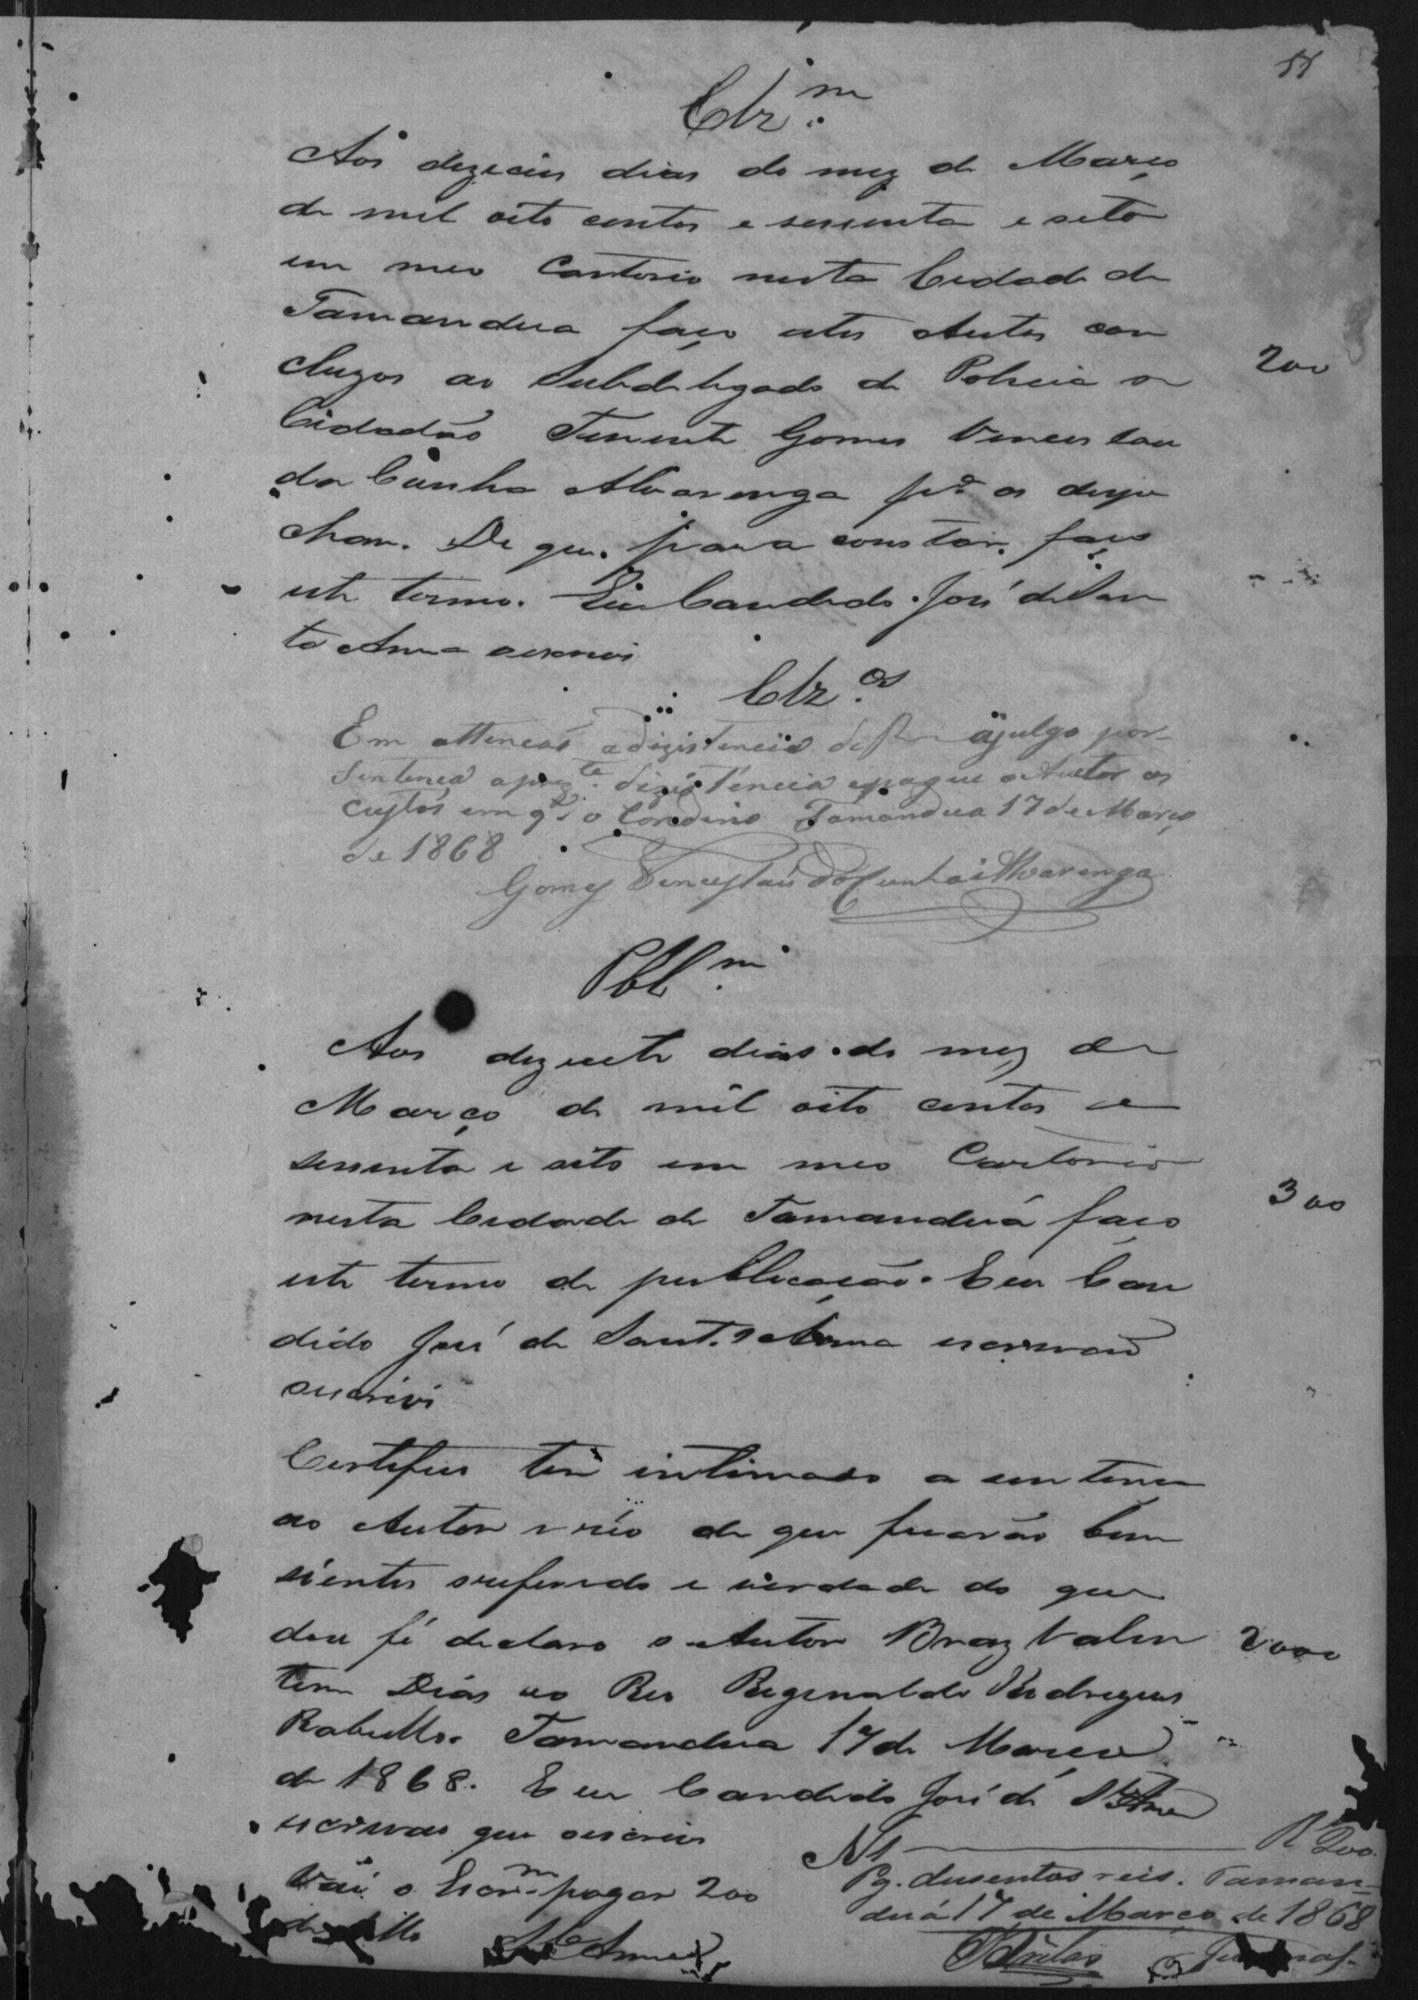 Clz.m
Aos dezeceis dias do mez de Março
de mil oito centos e sessenta e oito
em meo Cartorio nesta Cidade de
Tamandua faço estes Autos con
cluzos ao Subdelegado de Policia o
200
Cidadão Tenente Gomes Venceslau
da Cunha Alvarenga pa os despa
charr. De que para constar faço
este termo. Eu Candido José de San
ta Anna escrevi
Clz.os
Em attencaõ a dizistencia julgo por
Sentenca a prez.te dizistencia epague o Autor as
custas em q. o Condeno Tamandua 17 de Março
de 1868
Gomes Vencesláu da Cunha Alvarenga
Pbl.m
Aos dezecete dias do mez de
Março de mil oito centos e
sessenta e oito em meo Cartorio
nesta Cidade de Tamanduá faço
300
este termo de publicacão. Eu Can
dido José de Sant.a Anna escrivaõ
escrivi
Certifico ter intimado a sentenca
ao Autor e réo de que ficarão bem
sientes o referido e verdade do que
dou fé declaro o Autor Braz Valen
2000
tim Dias eo Reo Reginaldo Rodrigues
Rabello. Tamandua 17 de Março
de 1868. Eu Candido José de S.ta Anna
escrivao que escrevi
N 1 R 200
Vai o Escr.m pagar 200
Pg. dusentos reis. Taman-
duá 17 de Março de 1868
de sello
S.ta Anna